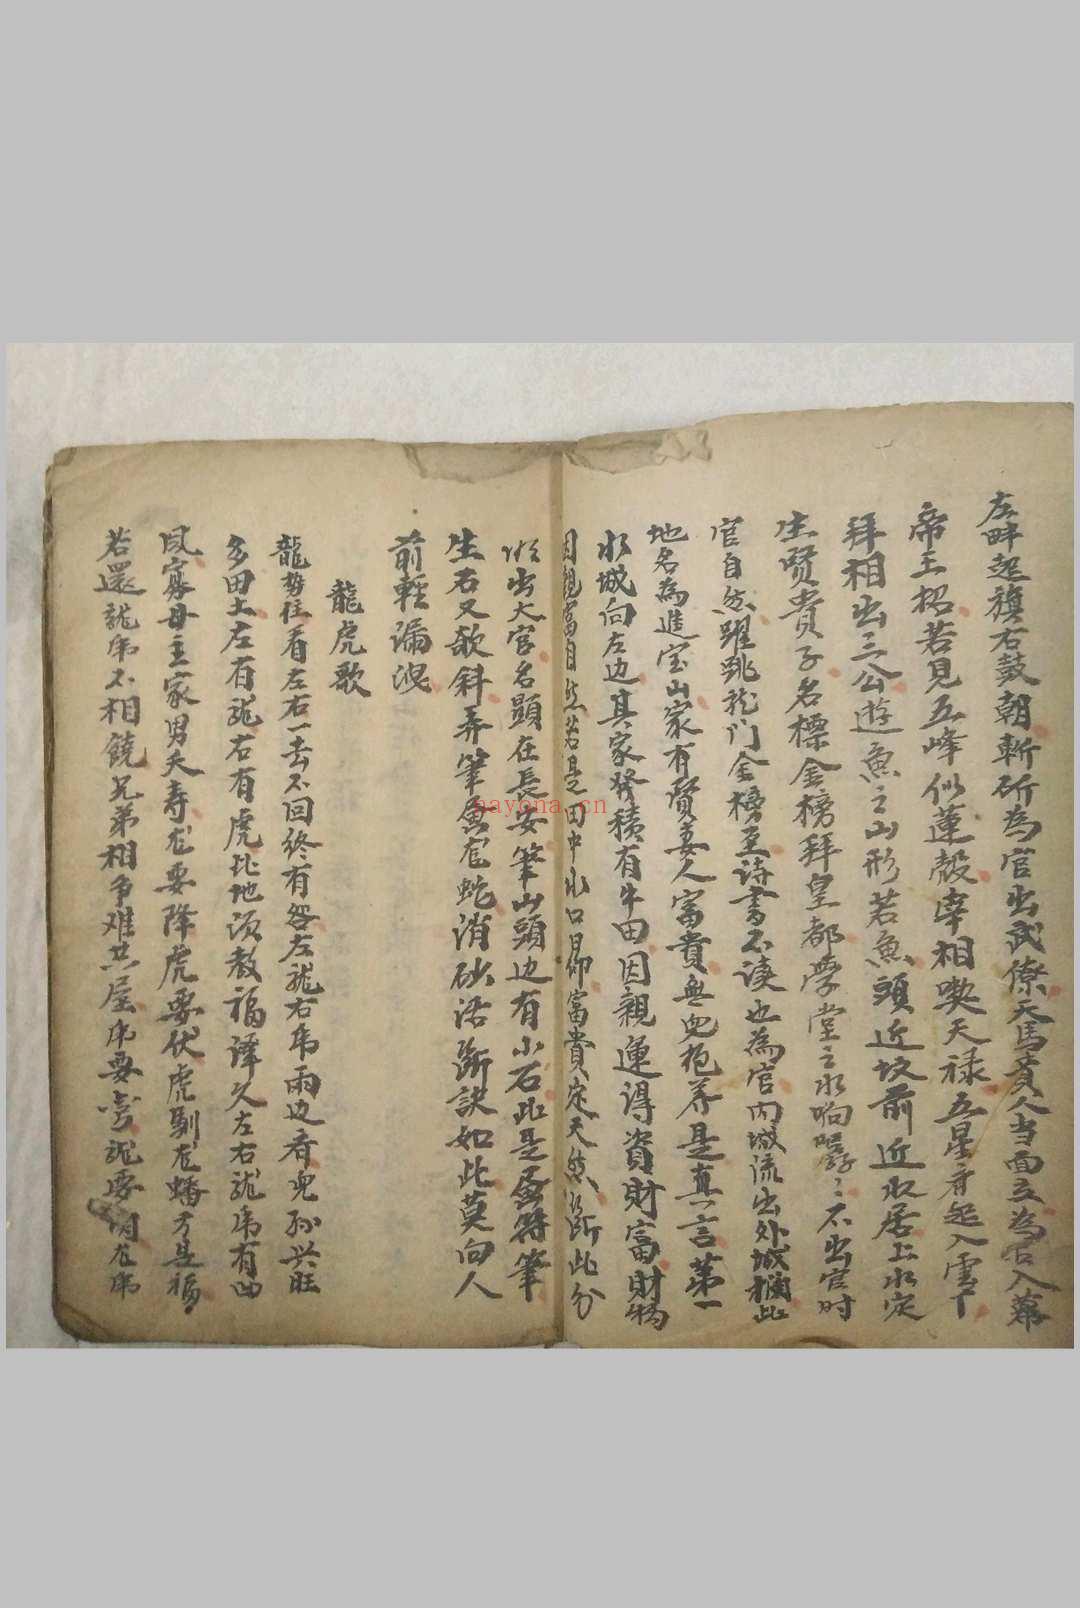 左畔起旗右鼓朝斬斫為官出武僚天馬貴人当面立為官入幕
帝王招若見五峰似蓮殼宰相喫天禄五星旁起入雲下
拜相出三公遊魚之山形若魚頭近坟前近水居上水定
生賢貴子名標金榜拜皇都學堂之水响嚼〻不出官时
官自然躍跳龍门金榜至诗書不读也為官内城流出外城横此
地名為進宝山家有賢妻人富貴無児抱养是真言第一
水城向左边其家發積有牛田因親運得資財富財物
因親富自然若是田中水口仰富貴定天然断此分
出大官名顕在長安筆山頭边有小石此是符筆
生右又欹斜弄筆蛇消砂法断訣如此莫向人
前輕漏洩
龍虎歌
龍势往看左右一去不回终有怨左龍右虎兩边看児孙兴旺
多田土左有龍右有虎此地须教福譯久左右龍虎有凹
風寡母主家男夭寿龙要降虎要伏虎馴龙蟠方是福
若還龍虎不相饒兄弟相争难共屋虎要龍要龙虎
nayona.cn